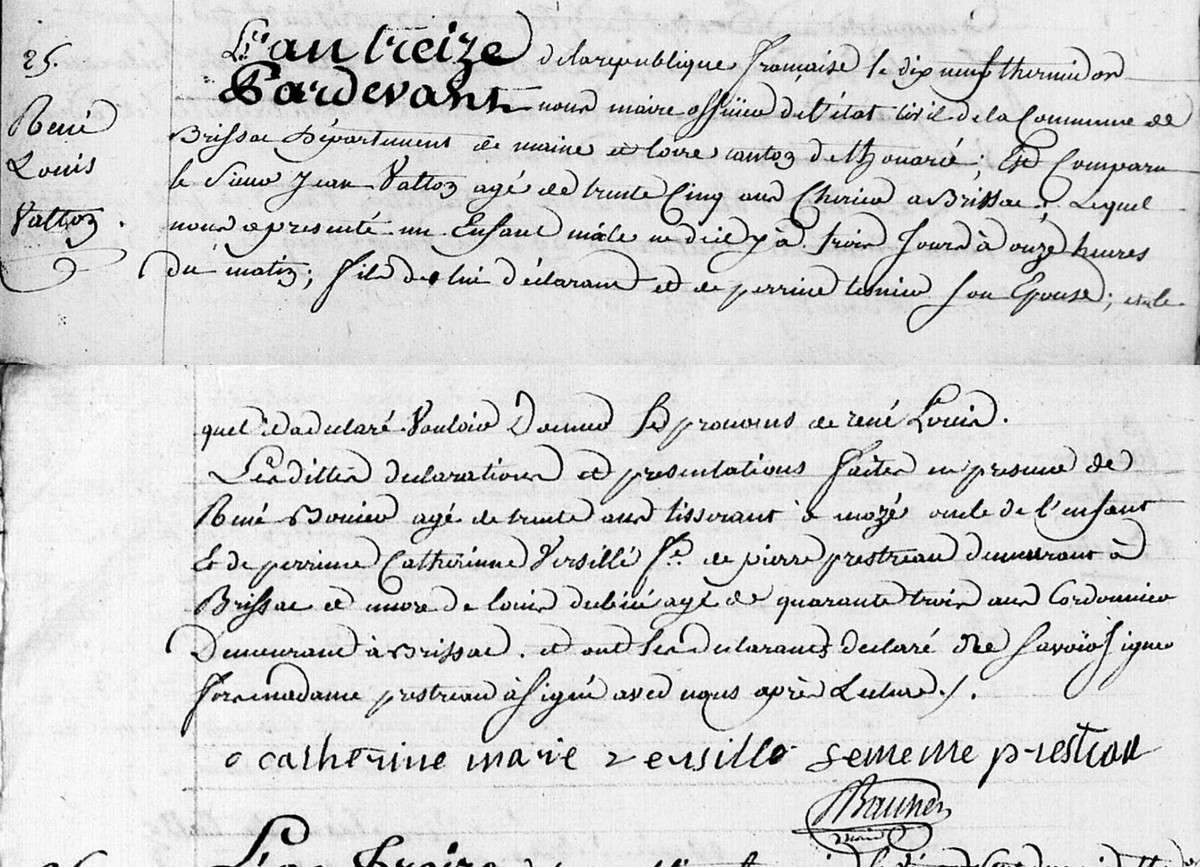 25.
René
Louis
Vatton.
L'an treize de la republique francaise le dix neuf thermidor
Pardevant nous maire officier de l'état civil de la Commune de
Brissac Département de maine et loire canton de thouarcé; Est Comparu
le Sieur Jean Vatton agé de trente Cinq ans a Brissac; Lequel
nous a presenté un Enfant mâle né d'il y à trois Jours à onze heures
du matin; fils de lui déclarant et de perrine Son Epouse; et le
quel il a declaré Vouloir Donner les prenoms de rené Louis.
Les dittes declarations et presentations faites en presence de
René agé de trente ans tisserant à mozé oncle de l'enfant
Et de perrinne Catherinne Versillé fe. de pierre prestreau demeurant à
Brissac et encore de louis agé de quarante trois ans Cordonnier
Demeurant à Brissac. et ont les declarants declaré ne Savoir Signer
fors madame prestreau à Signé avec nous après Lecture ./.
catherine marie versille fememe prestrau
L'an treize